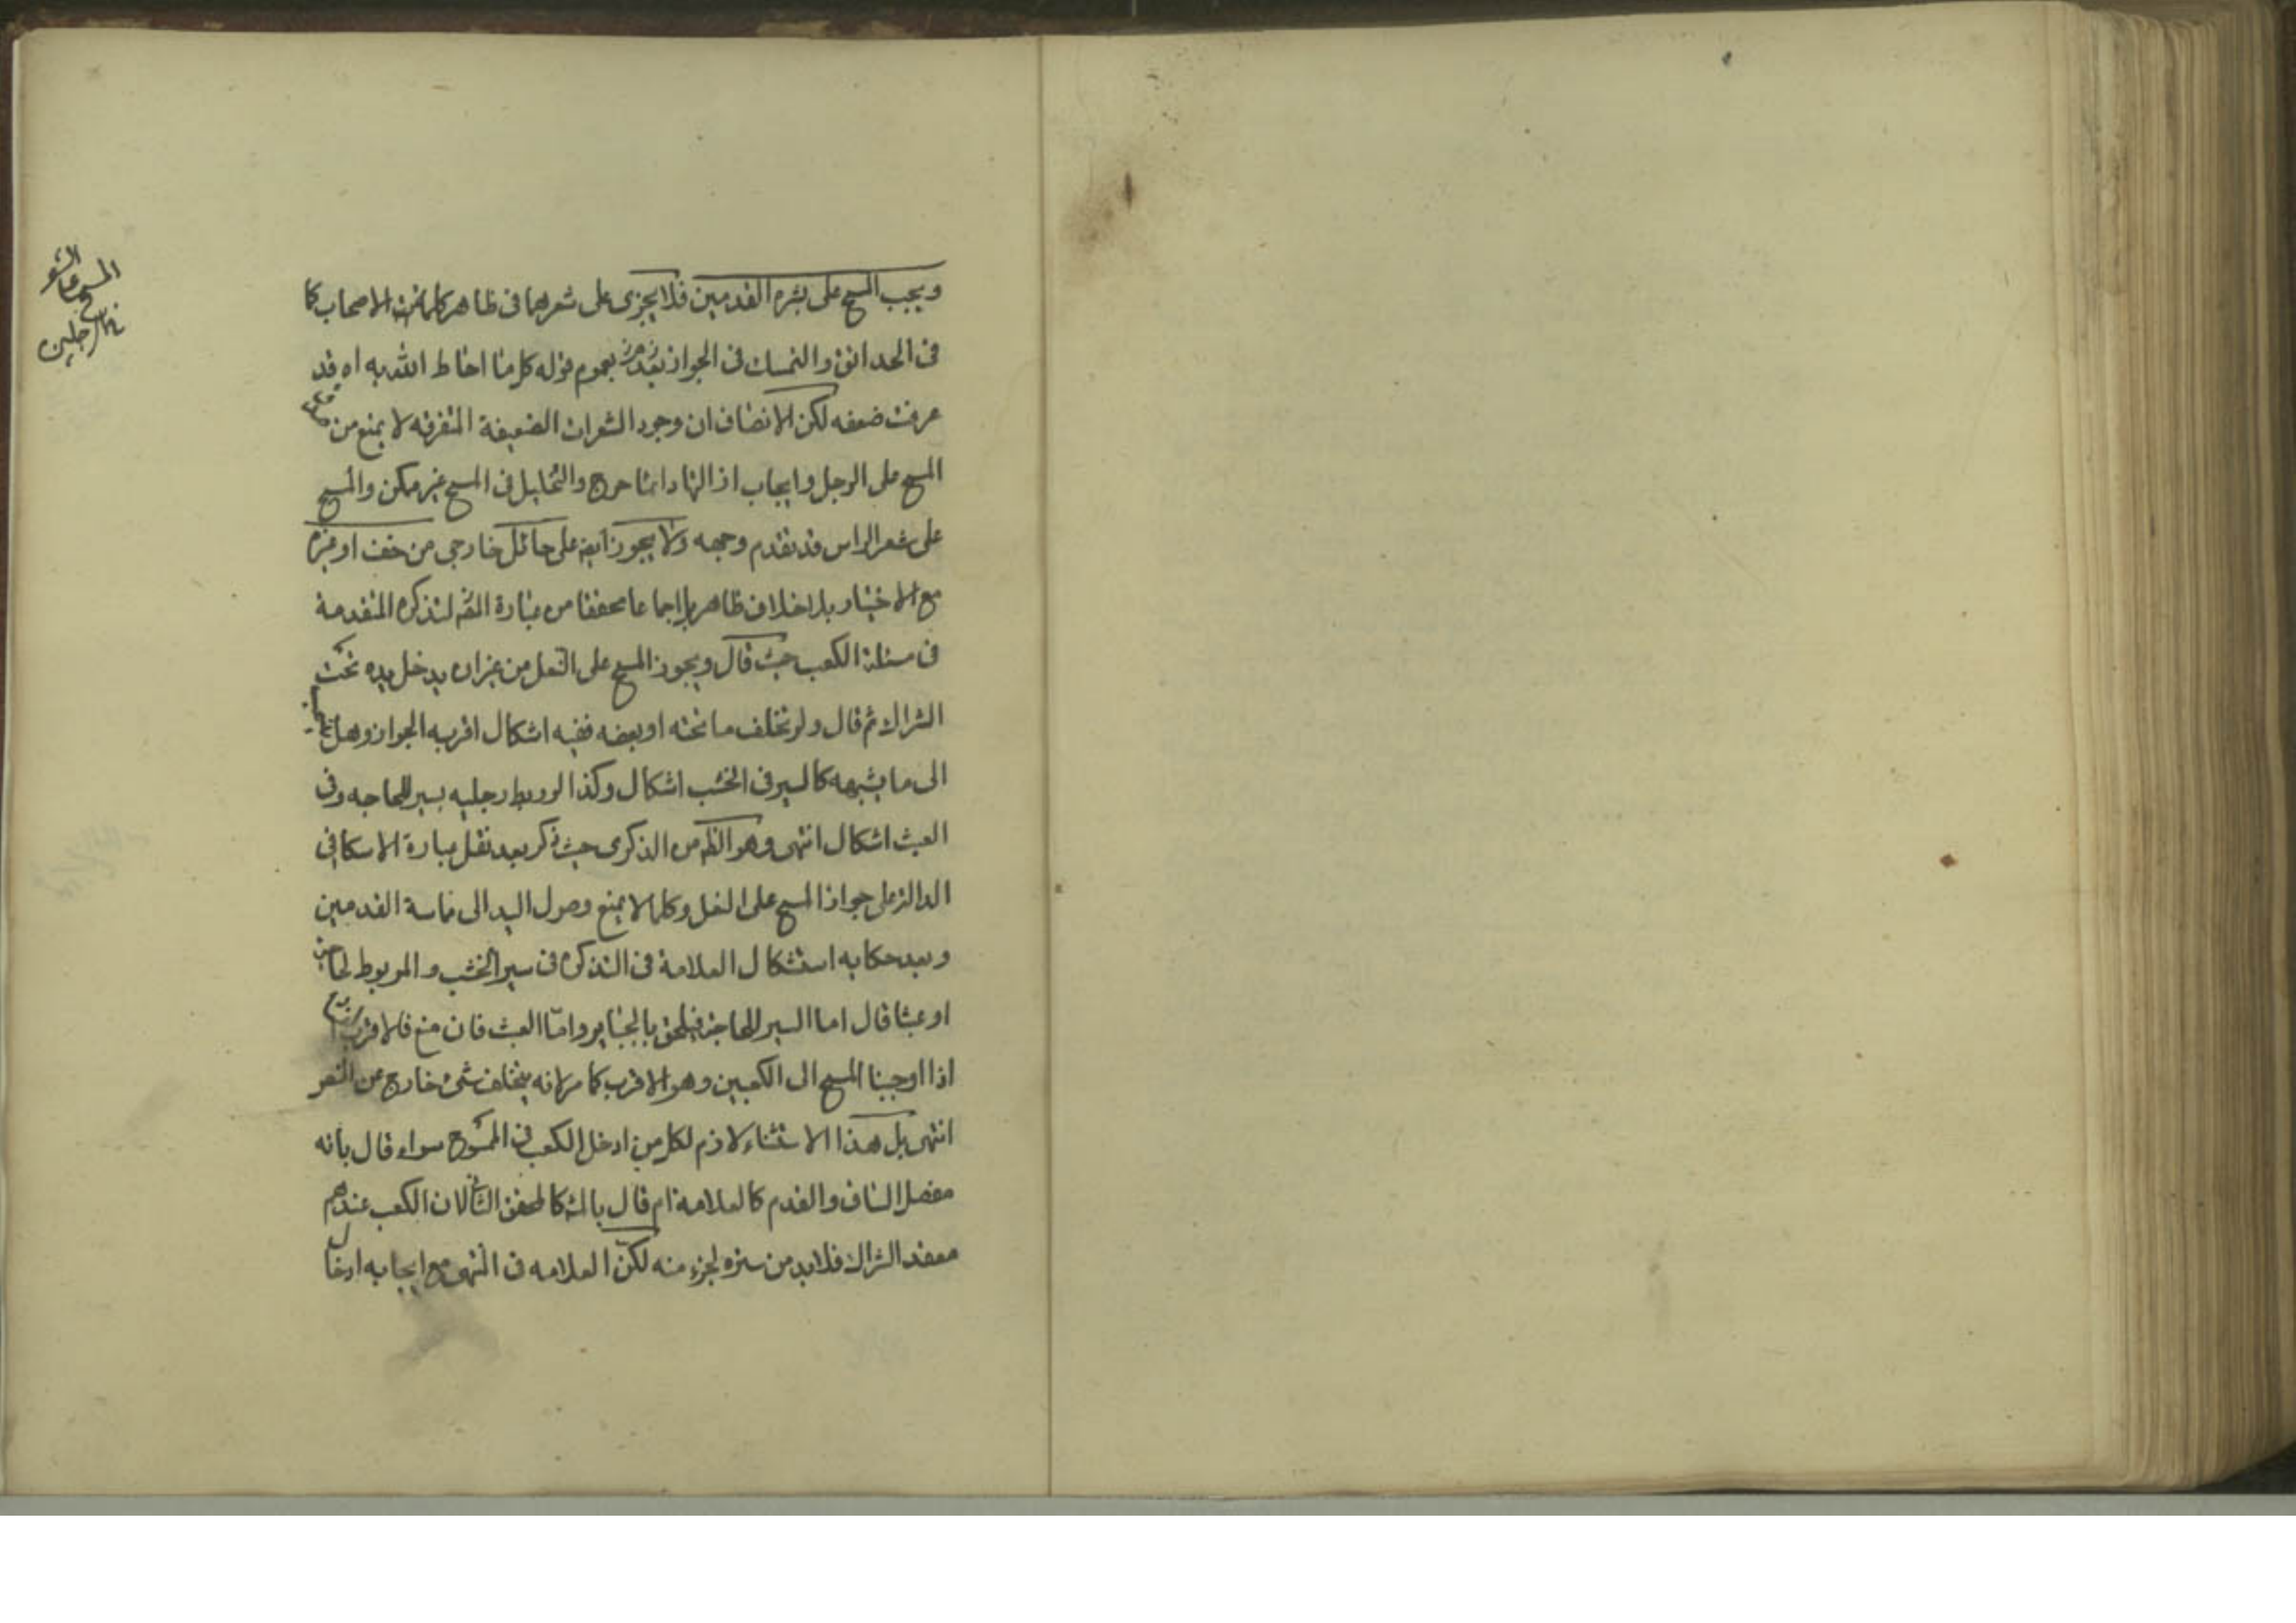 المسح على الشعر
في الرجلين
ويجب المسح على بشرة القدمين فلا يجزى على شعرهما فى ظاهر كلمات الاصحاب كما
فى الحدائق والتمسك فى الجواز بعموم قوله كل ما احاط الله به اه قد
عرفت ضعفه لكن الانصاف ان وجود الشعرات الضعيفة المتفرقه لا يمنع من صدق
المسح على الرجل وايجاب ازالتها دائما حرج والتخليل فى المسح غير ممكن والمسح
على شعر الراس قد تقدم وجهه ولا يجوز ايضا على حائل خارجى من خف او غيره
مع الاختيار بلا خلاف ظاهر بل اجماعا محققا من عبارة التذكره المتقدمة
فى مسئلة الكعب حيث قال ويجوز المسح على النعل من غير ان يدخل يده تحت
الشراك ثم قال ولو تخلف ما تحته او بعضه ففيه اشكال اقربه الجواز وهل
الى ما يشبهه كالسير فى الخشب اشكال وكذا لو ربط رجليه بسير للحاجه وفى
العبث اشكال انتهى وهو الظم من الذكرى حيث ذكر بعد نقل عبارة الاسكافى
الدالة على جواز المسح على النعل وكلما لا يمنع وصول اليد الى مماسة القدمين
وبعد حكايه استشكال العلامة فى التذكره فى سير الخشب والمربوط لحاجة
او عبثا قال اما السير للحاجة فيلحق بالجبائر واما العبث فان منع فلاقرب
اذا اوجبنا المسح الى الكعبين وهو الاقرب كما مر لانه يتخلف شئ خارج عن النص
انتهى بل هذا الاستثناء لازم لكل من ادخل الكعب فى الممسوح سواء قال بانه
مفصل الساق والقدم كالعلامة ام قال بالمش كالمحقق الثانى لان الكعب عندهم
معقد الشراك فلابد من ستره لجزء منه لكن العلامه فى المنتهى مع ايجابه ادخال